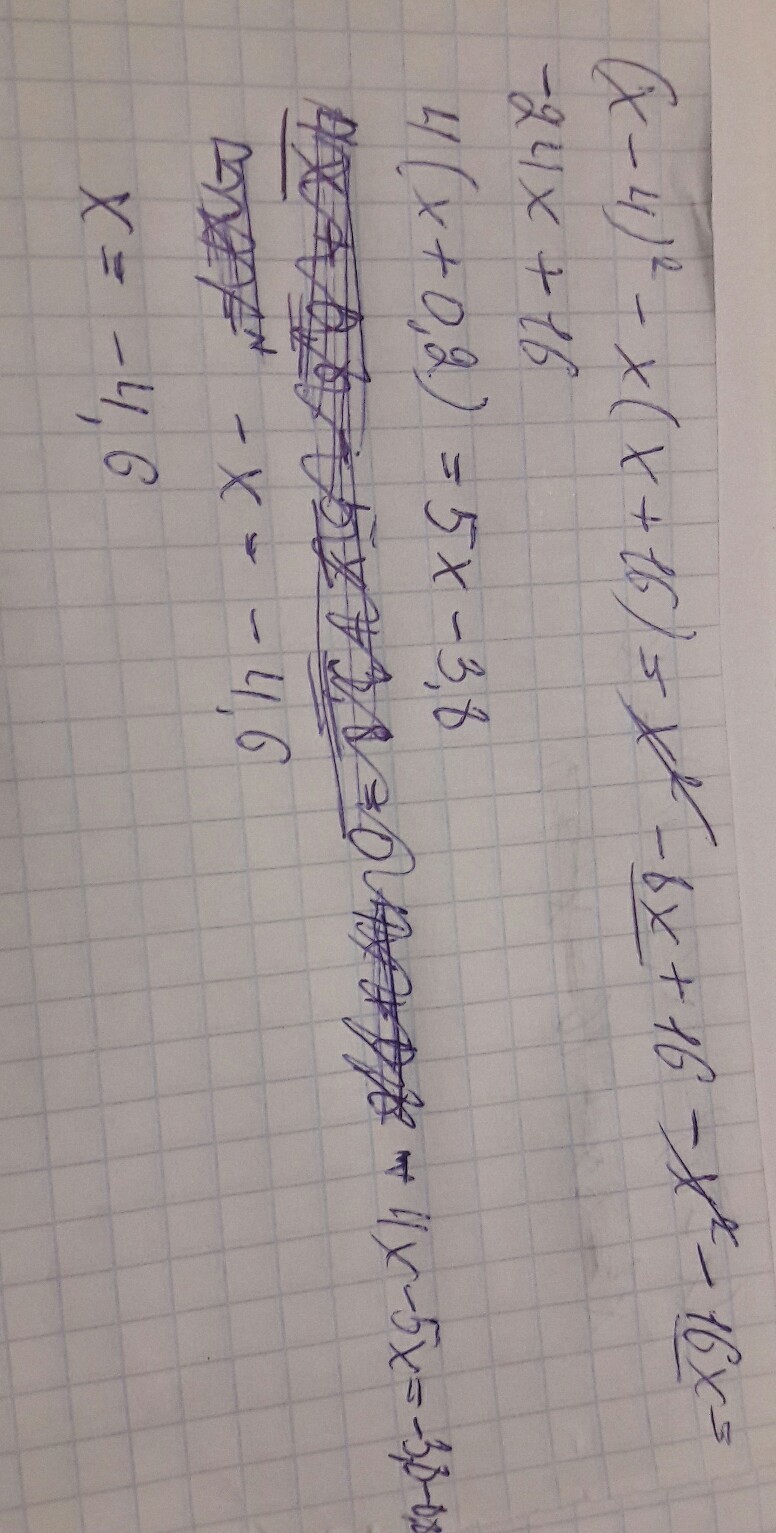 (x-4)² - x(x+16) = x² - 8x + 16 - x² - 16x =
-24x + 16
4(x+0,2) = 5x - 3,8
4x - 5x = -3,8 - 0,8
- x = - 4,6
x = - 4,6